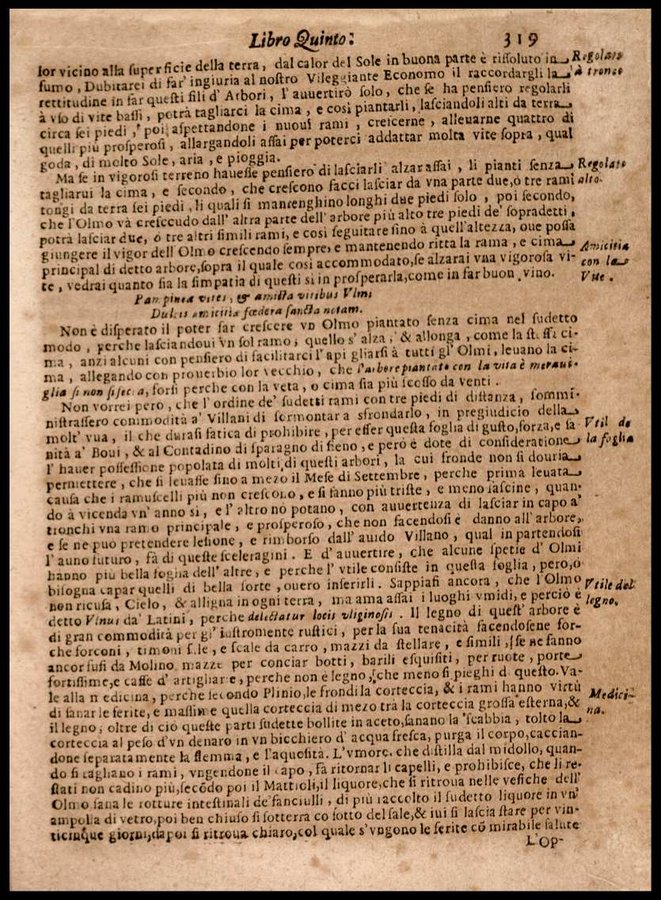 Libro Quinto: 319
lor vicino alla superficie della terra, dal calor del Sole in buona parte è rissoluto in
fumo, Dubitarei di far' ingiuria al nostro Vileggiante Economo il raccordargli la
rettitudine in far questi fili d' Arbori, l' auuertirò solo, che se ha pensiero regolarli
à vso di vite bassi, potrà tagliarci la cima, e così piantarli, lasciandoli alti da terra
circa sei piedi, poi aspettandone i nuoui rami, creicerne, alleuarne quattro di
quelli più prosperosi, allargandoli assai per poterci addattar molta vite sopra, qual
goda, di molto Sole, aria, e pioggia.
Regolars
à tronco
Ma se in vigorosi terreno hauesse pensiero di lasciarli alzar assai, li pianti senza
tagliarui la cima, e secondo, che crescono facci lasciar da vna parte due, ò tre rami
longi da terra sei piedi, li quali si mantenghino longhi due piedi solo, poi secondo,
che l'Olmo và crescendo dall' altra parte dell' arbore più alto tre piedi de' sopradetti,
potrà lasciar due, ò tre altri simili rami, e così seguitare fino à quell'altezza, oue possa
giungere il vigor dell Olmo crescendo sempre, e mantenendo ritta la rama, e cima
principal di detto arbore, sopra il quale così accommodato, se alzarai vna vigorosa vi-
te, vedrai quanto sia la simpatia di questi si in prosperarla, come in far buon vino.
Regolato
alto.
Amicitia
con la
Vite.
Pampinea vites, & amista vitibus Vlmi
Dulcis amicitiæ fœdera sancta notam.
Non è disperato il poter far crescere vn Olmo piantato senza cima nel sudetto
modo, perche lasciandoui vn sol ramo, quello s' alza, & allonga, come la stessa ci-
ma, anzi alcuni con pensiero di facilitarci l' api gliarsi à tutti gl' Olmi, leuano la ci-
ma, allegando con prouerbio lor vecchio, che l'arbore piantato con la vita è meraui-
glia si non si secca, forsi perche con la veta, o cima sia più scosso da venti.
Non vorrei però, che l'ordine de' sudetti rami con tre piedi di distanza, sommi-
nistrassero commodità a' Villani di sormontar a sfrondarlo, in pregiudicio della
molt' vua, il che durasi fatica di prohibire, per esser questa foglia di gusto, forza, e sa-
nità a' Boui, & al Contadino di sparagno di fieno, e però è dote di consideratione
l' hauer possessione popolata di molti di questi arbori, la cui fronde non si douria
permettere, che si leuasse fino a mezo il Mese di Settembre, perche prima leuata
causa che i ramuscelli più non crescono, e si fanno più triste, e meno fascine, quan-
do à vicenda vn' anno si, e l' altro no potano, con auuertenza di lasciar in capo a'
tronchi vna ramo principale, e prosperoso, che non facendosi è danno all' arbore,
e se ne può pretendere lesione, e rimborso dall' auido Villano, qual in partendosi
l' auno futuro, fà di queste sceleragini. E d' auuertire, che alcune spetie d' Olmi
hanno più bella foglia dell' altre, e perche l' vtile consiste in questa foglia, però, ò
bisogna capar quelli di bella sorte, ouero inserirli. Sappiasi ancora, che l'Olmo
non ricusa, Cielo, & alligna in ogni terra, ma ama assai i luoghi vmidi, e perciò è
detto Vlnus da' Latini, perche delectatur locis vliginosis. Il legno di quest' arbore è
di gran commodità per gi' instromente rustici, per la sua tenacità facendosene for-
che forconi, timoni s.le, e scale da carro, mazzi da stellare, e simili, se ne fanno
ancor fusi da Molino mazze per conciar botti, barili esquisiti, per ruote, porte
fortissime, e casse d' artigliarie, perche non è legno, che meno si pieghi d questo. Va-
le alla medicina, perche secondo Plinio, le frondi la corteccia, & i rami hanno virtù
di sanar le ferite, e massime quella corteccia di mezo trà la corteccia grossa esterna, &
il legno; oltre di ciò queste parti sudette bollite in aceto, sanano la scabbia, tolto la
corteccia al peso d'vn denaro in vn bicchiero d' acqua fresca, purga il corpo, caccian-
done separatamente la flemma, e l'aquosità. L'vmore. che distilla dal midollo, quan-
do si tagliano i rami, vngendone il capo, fà ritornar li capelli, e prohibisce, che li re-
stati non cadino più, secõdo poi il Mattioli, il liquore, che si ritroua nelle vesiche dell'
Olmo sana le rotture intestinali de' fanciulli, di più raccolto il sudetto liquore in vn'
ampolla di vetro, poi ben chiuso si sotterra co sotto del sale, & iui si lascia stare per vin-
ticinque giorni, dapoi si ritroua chiaro, col quale s'vngono le ferite cõ mirabile salute
Vtil de
la foglia
Vtile del
legno.
Medici-
na.
L'Op-